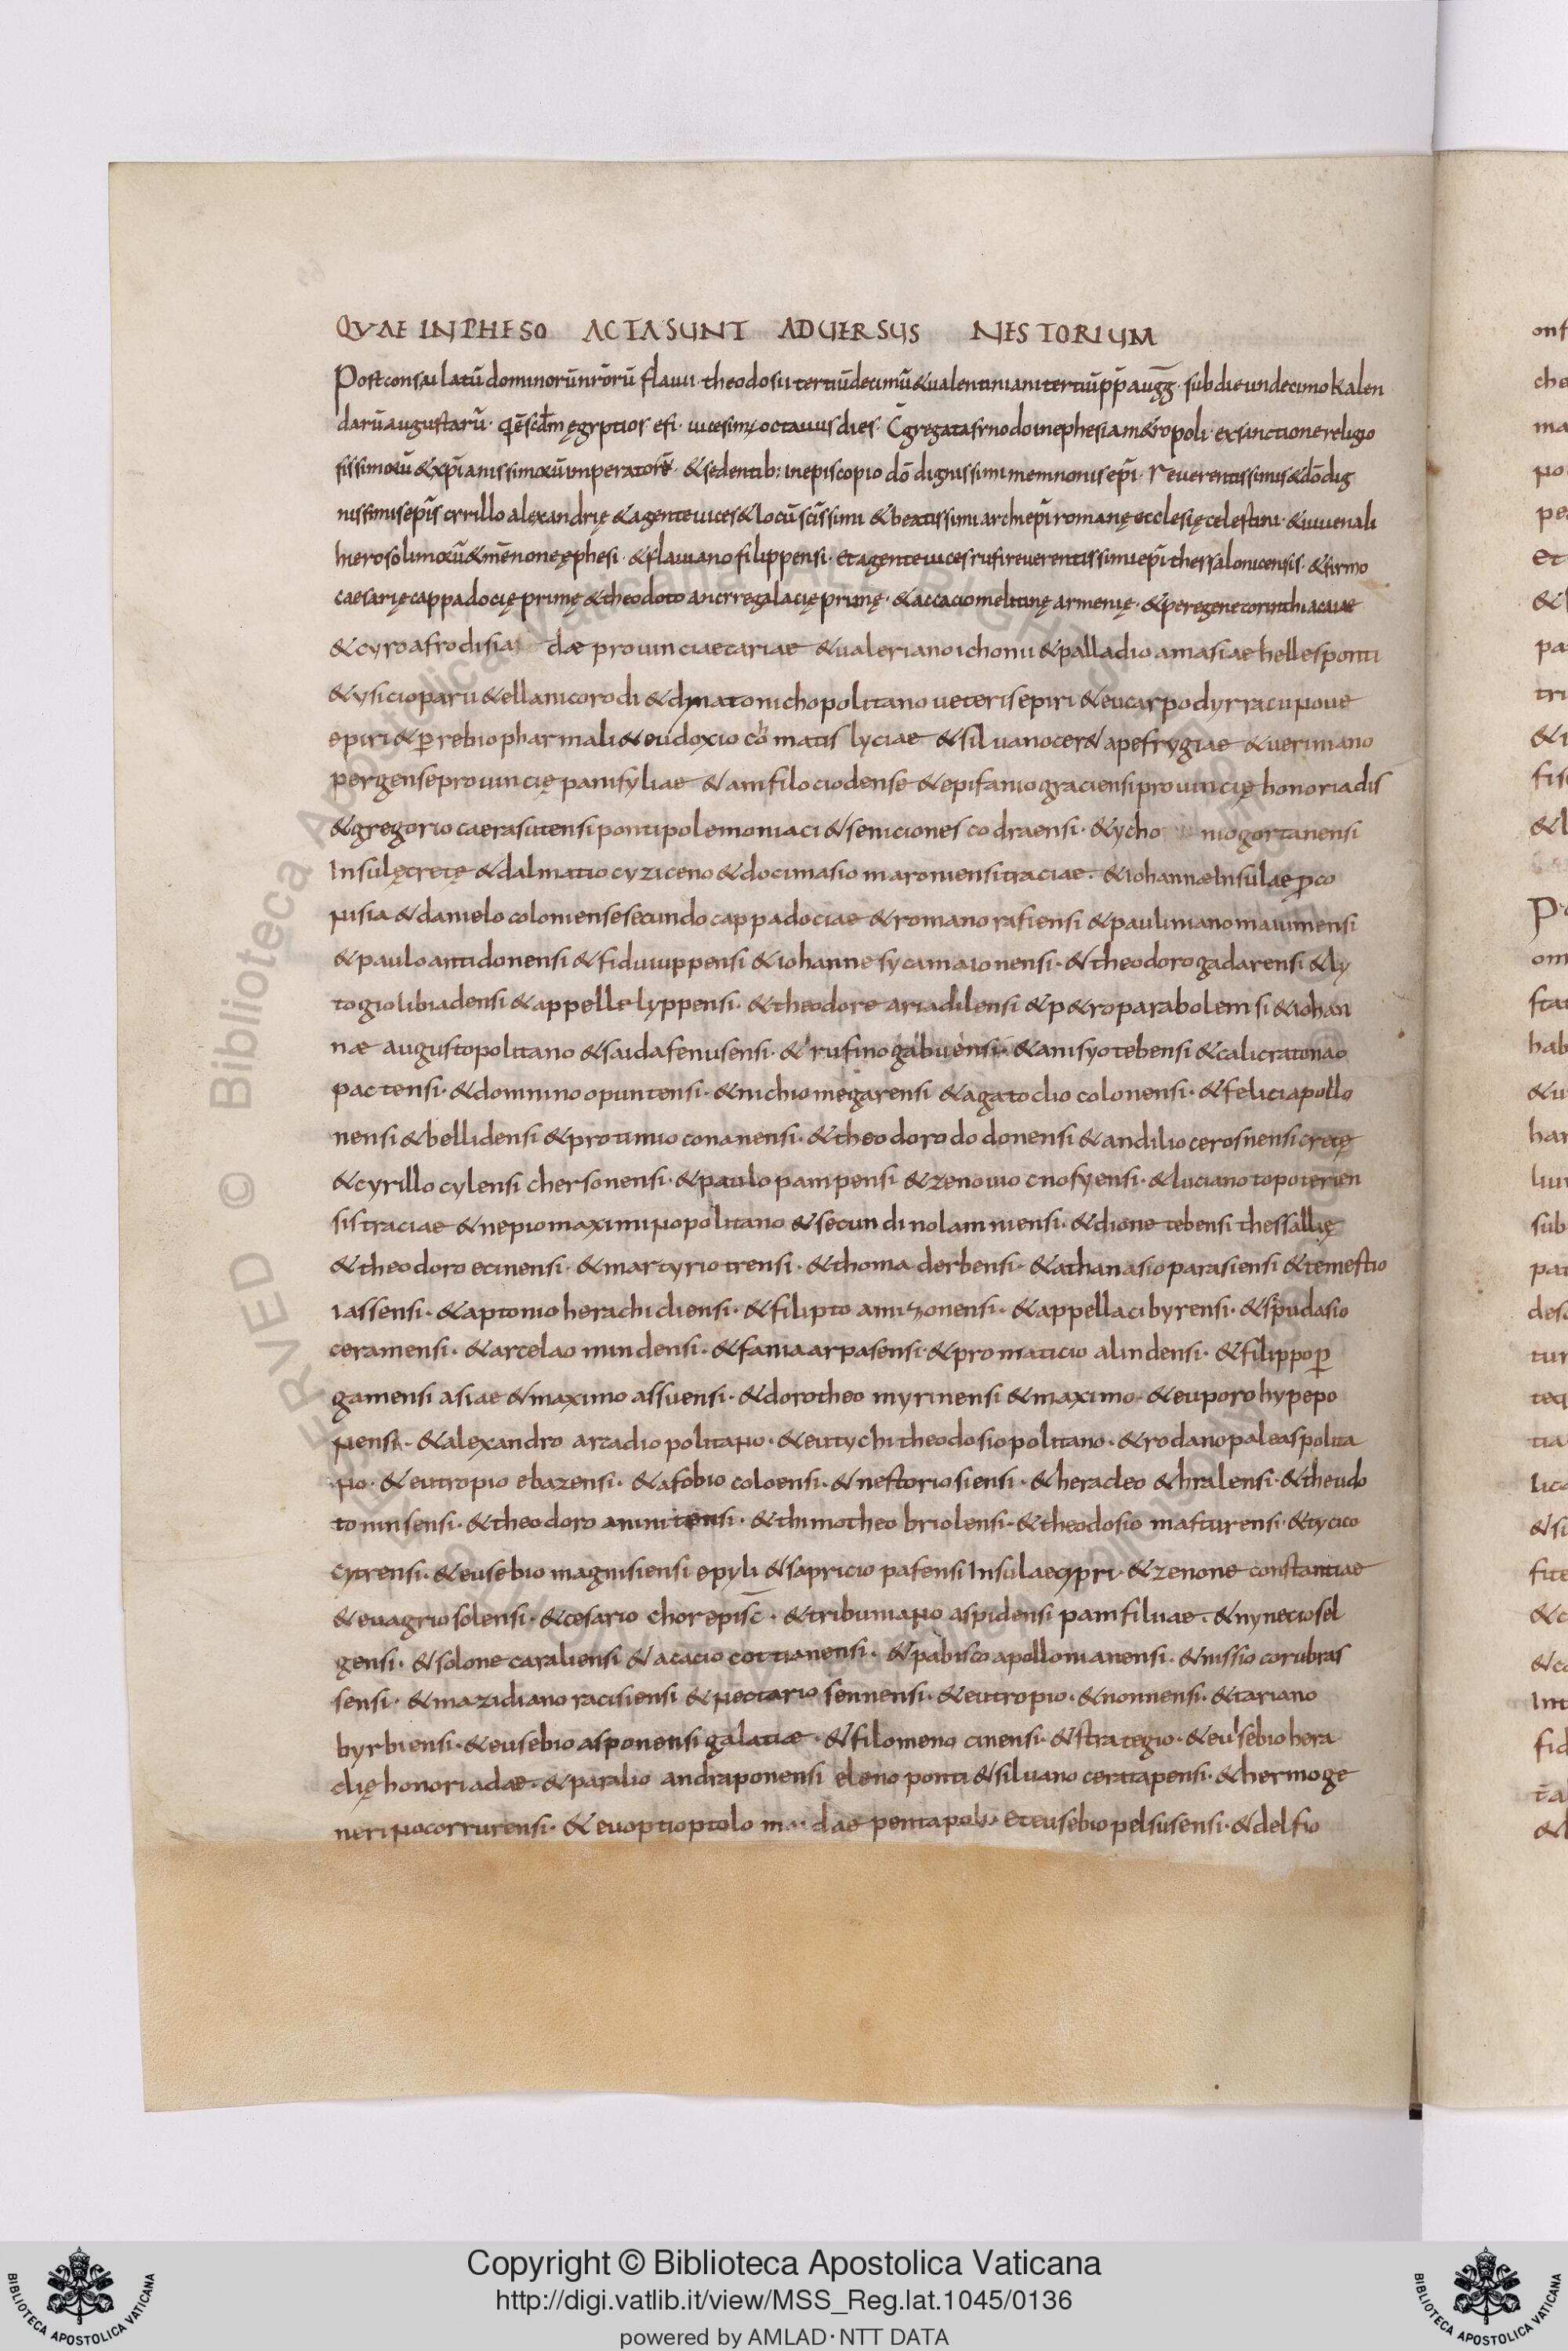 QVAE INPHESO ACTA SUNT ADUERSUS NESTORIUM
Post consulatū dominorū nrōrū flauii theodosii tertiūdecimū & ualentiniani tertiū pp̄ augg̅ · sub die undecimo kalen
darū augustarū · ęgyptios · uicesimę octauus dies · C̄gregata synodo in ephesia m&ropoli · ex sanctione religio
sissimorū & xp̄ianissimorū imperatorū · & sedentib: in episcopio dō dignissimi memnonis ep̄i · reuerentissimis & dō dig
nissimis ep̄is cyrillo alexandrię & agente uices & locū scīssimi & beatissimi archiep̄i romanę ecclesię celestini · & iuuenali
hierosolimorū & mēnone ephesi · & flauiano filippensi · et agente uices rufi reuerentissimi ep̄i thessalonicensis · & firmo
caesarię cappadocię primę & theodoto ancyre galacię primę · & accacio melitinę armenię · & peregene corinthi acaiae
& cyro afrodisia dae prouinciae cariae & ualeriano ichonii & palladio amasiae hellesponti
& ysicio parii & ellanico rodi & dynato nichopolitano ueteris epiri & eucarpo dyrracii noue
epiri & p̱rebio pharmali & eudoxio cómatis lyciae & siluano cer&apefrygiae & ueriniano
pergense prouincię pamfyliae & amfilocio dense & epifanio graciensi prouincię honoriadis
& gregorio caerasutensi ponti polemoniaci & seniciones codraensi · & ycho nio gortanensi
Insulę cretę & dalmatio cyziceno & docimasio maroniensi traciae · & iohannae Insulae p̱co
nisia & danielo coloniense secundo cappadociae & romano rafiensi & pauliniano maiumensi
& paulo antidonensi & fidu iuppensi & iohanne sycamaionensi · & theodoro gadarensi & ly
togio libiadensi & appelle lyppensi · & theodore ariadilensi & p&ro parabolemsi & iohan
nae augustopolitano & saida fenusensi · & rufino gabuensi · & anisyo tebensi & calicrato nao
pactensi · & domnino opuntensi · & nichio megarensi & agatoclio colonensi · & felici apollo
nensi & bellidensi & protimio conanensi · & theodoro dodonensi & andilio cerosnensi cretę
& cyrillo cylensi chersonensi · & paulo pampensi & zenouio cnosyensi · & luciano topoterien
sis traciae & nepio maximinopolitano & secundino lamniensi · & dione tebensi thessalię
& theodoro ecinensi · & martyrio trensi · & thoma derbensi · & athanasio parasiensi & temestio
iassensi · & aptonio herachicliensi · & filipto amizonensi · & appella cibyrensi · & spudasio
ceramensi · & arcelao mindensi · & fania arpasensi · & promaticio alindensi · & filippo p̱
gamensi asiae & maximo assuensi · & dorotheo myrinensi & maximo · & euporo hypepo
nensi · & alexandro arzadiopolitano · & eutychi theodosiopolitano · & rodano paleaspolita
no · & eutropio ebazensi · & afobio coloensi · & nestorio siensi · & heracleo &hralensi · & theudo
to ninsensi · & theodoro aninitensi · & thimotheo briolensi · & theodosio masturensi · & tycico
cytrensi · & eusebio magnisiensi epyli & sapricio pafensi Insulae cypri · & zenone constantiae
& euagrio solensi · & cesario chorepisc̄ · & tribuniano aspidensi pamfiliiae · & nynecio sel
gensi · & solone caraliensi & acacio cottianensi · & pabisco apollonianensi · & nissio corubras
sensi · & mazidiano racisiensi & nectario sennensi · & eutropio · & nonnensi · & tariano
byrbiensi · & eusebio asponensi galatiae · & filomeno cinensi · & strategio · & eusebio hera
clię honoriadae · & paralio andraponensi eleno ponti & siluano ceratapensi · & hermoge
ne rinocorrurensi · & euoptio ptoloma dae pentapoli · Et eusebio pelsusensi · & delfio
Copyright © Biblioteca Apostolica Vaticana
http://digi.vatlib.it/view/MSS_Reg.lat.1045/0136
powered by AMLAD·NTT DATA